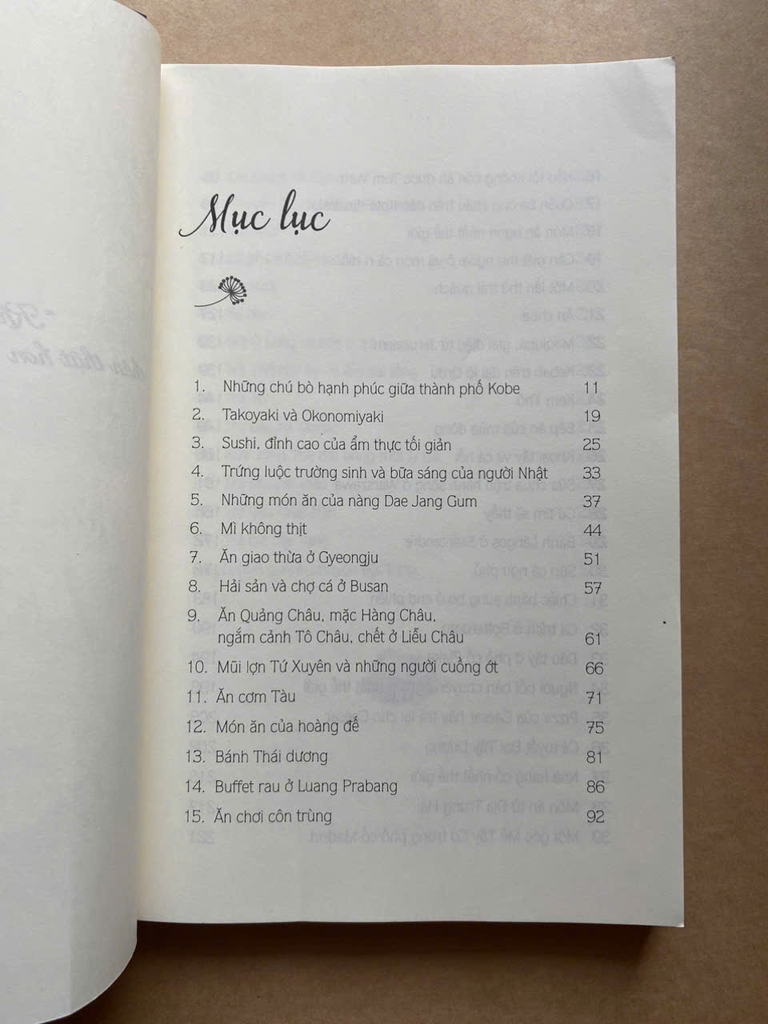 Mục lục
1. Những chú bò hạnh phúc giữa thành phố Kobe 11
2. Takoyaki và Okonomiyaki 19
3. Sushi, đỉnh cao của ẩm thực tối giản 25
4. Trứng luộc trường sinh và bữa sáng của người Nhật 33
5. Những món ăn của nàng Dae Jang Gum 37
6. Mì không thịt 44
7. Ăn giao thừa ở Gyeongju 51
8. Hải sản và chợ cá ở Busan 57
9. Ăn Quảng Châu, mặc Hàng Châu,
ngắm cảnh Tô Châu, chết ở Liễu Châu 61
10. Mũi lợn Tứ Xuyên và những người cuồng ớt 66
11. Ăn cơm Tàu 71
12. Món ăn của hoàng đế 75
13. Bánh Thái dương 81
14. Buffet rau ở Luang Prabang 86
15. Ăn chơi côn trùng 92